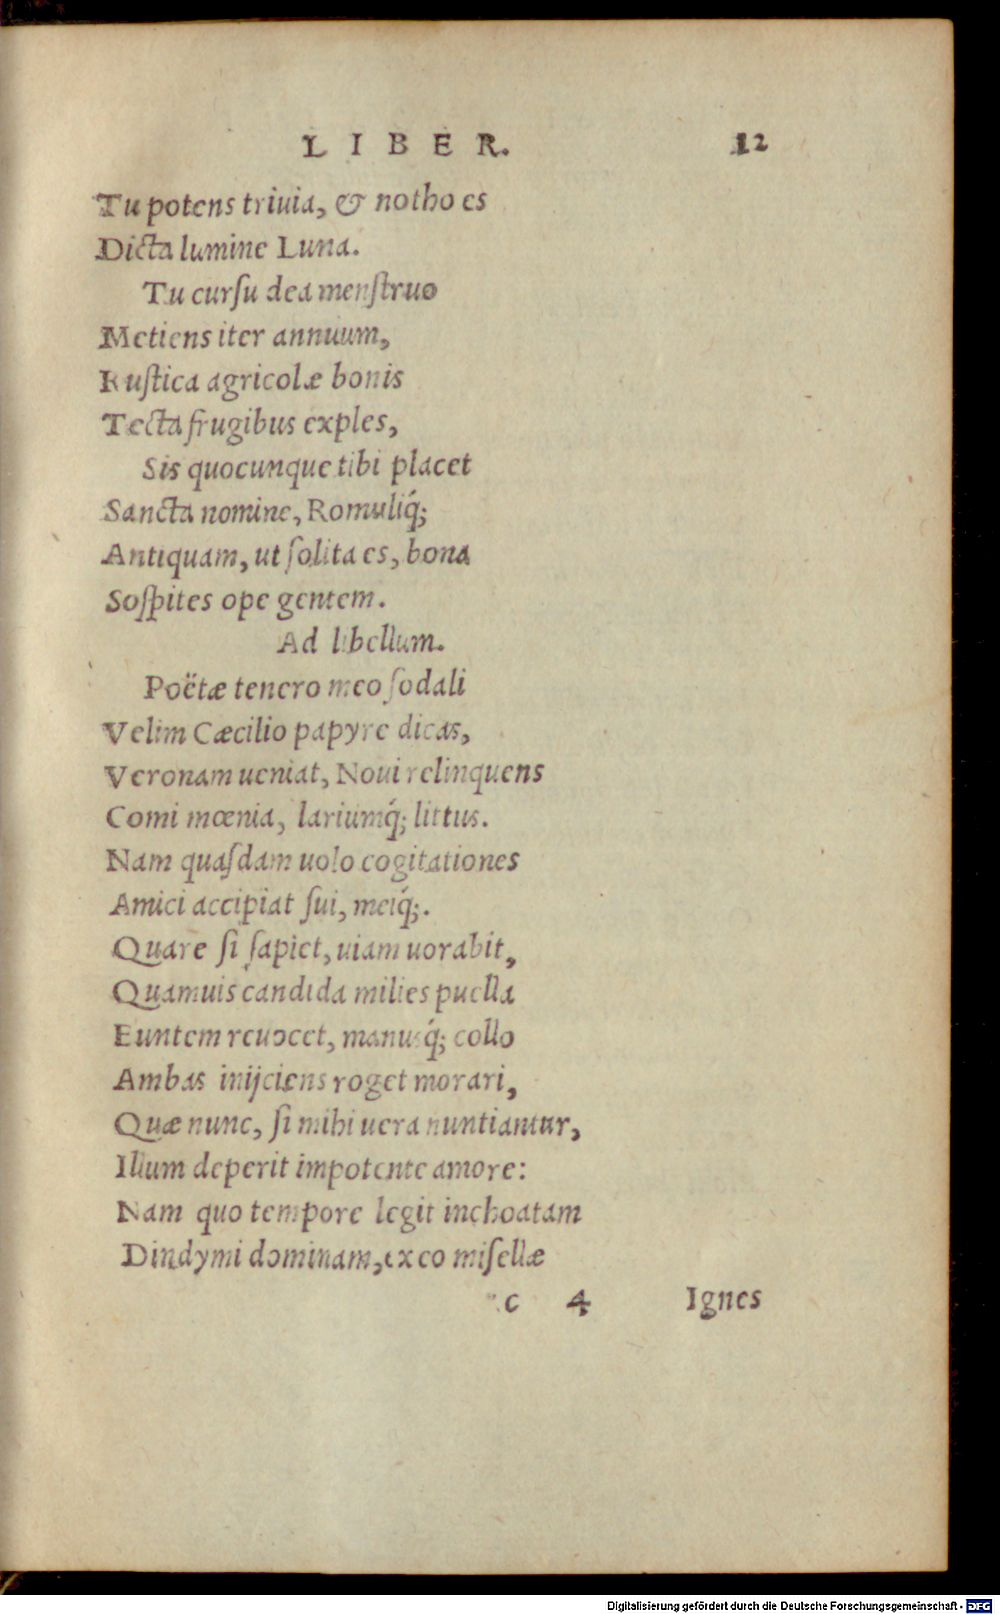 LIBER. 12
Tu potens triuia, & notho es
Dicta lumine Luna.
Tu cursu dea menſtruo
Metiens iter annuum,
Ruſtica agricolæ bonis
Tecta frugibus exples,
Sis quocunque tibi placet
Sancta nomine, Romuliq́;
Antiquam, ut ſolita es, bona
Soſpites ope gentem.
Ad libellum.
Poëtæ tenero meo ſodali
Velim Cæcilio papyre dicas,
Veronam ueniat, Noui relinquens
Comi mœnia, lariumq́; littus.
Nam quaſdam uolo cogitationes
Amici accipiat ſui, meiq́;.
Quare ſi ſapiet, uiam uorabit,
Quamuis candida milies puella
Euntem reuocet, manusq́; collo
Ambas inijciens roget morari,
Quæ nunc, ſi mihi uera nuntiantur,
Illum deperit impotente amore:
Nam quo tempore legit inchoatam
Dindymi dominam, ex eo miſellæ
c 4 Ignes
Digitalisierung gefördert durch die Deutsche Forschungsgemeinschaft - DFG